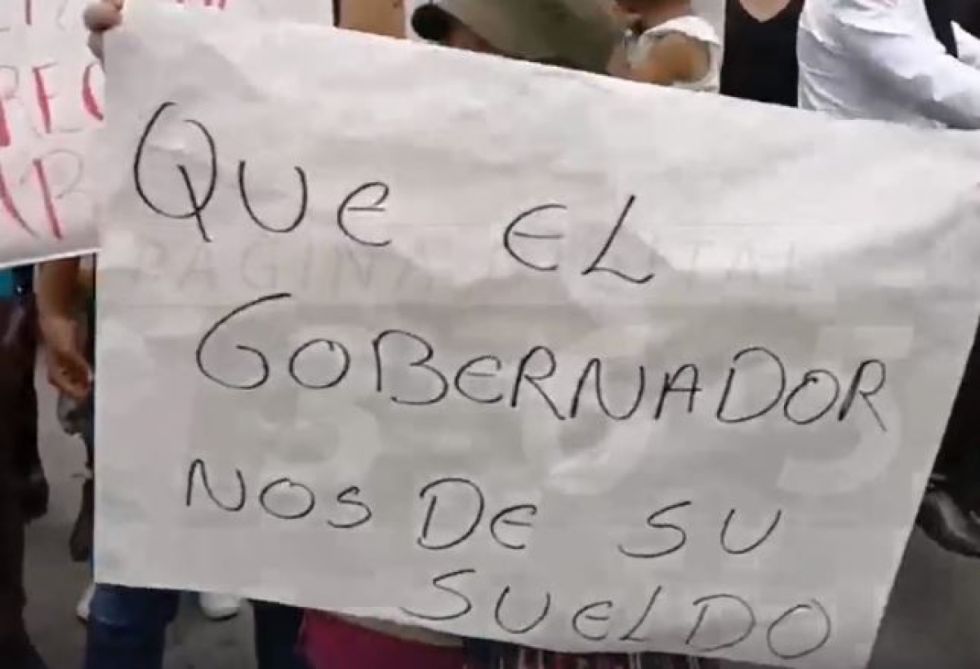 QUE EL
GOBERNADOR
NOS DE SU
SUELDO